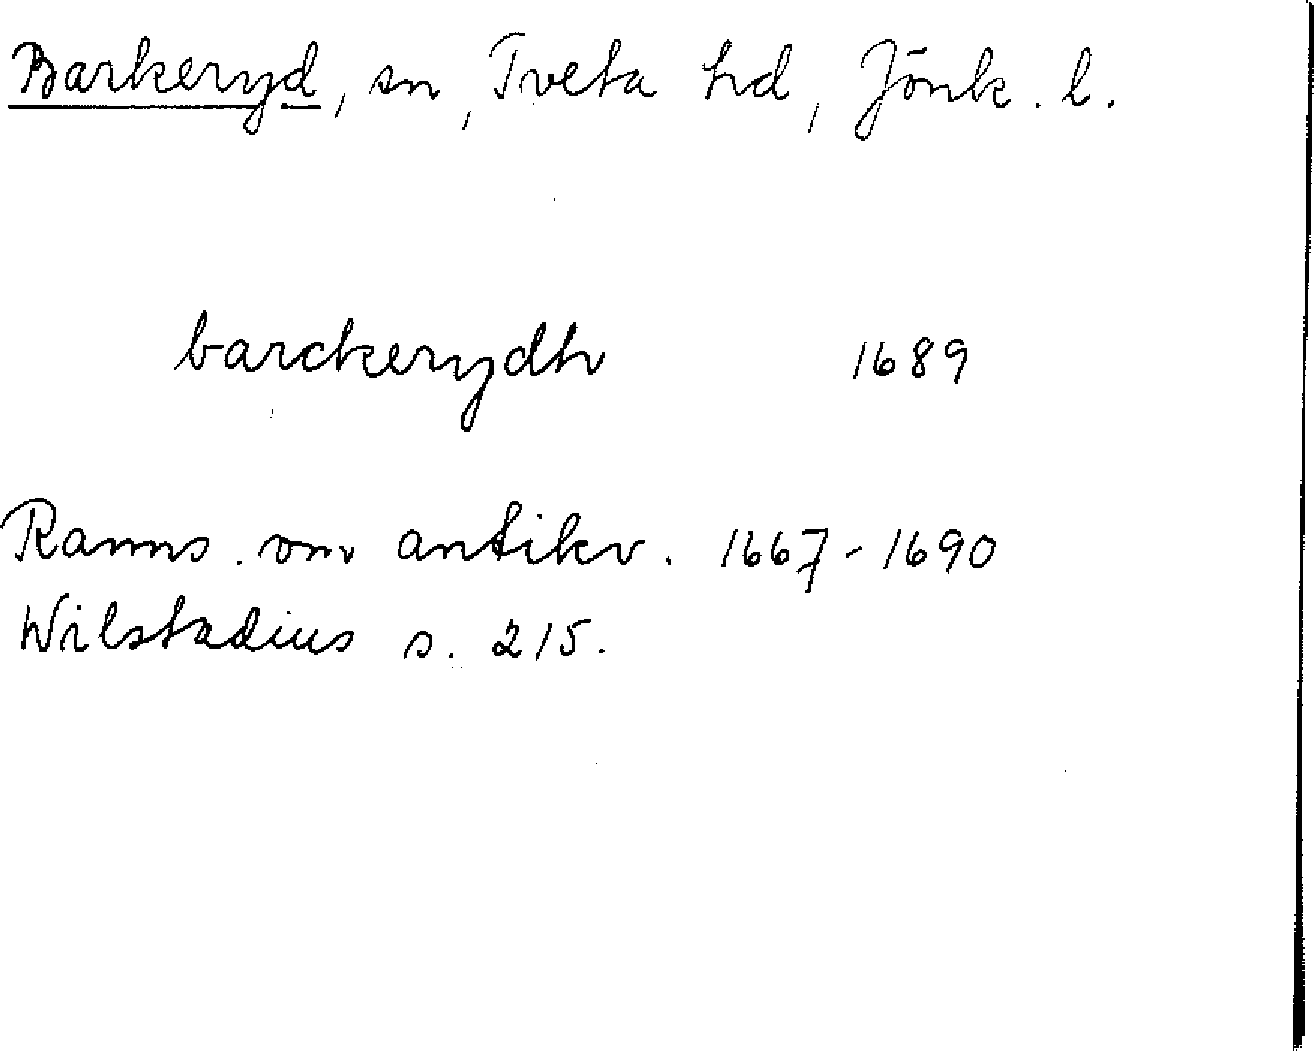 Barkeryd, sn, Tveta hd, Jönk. l.
barckerydh 1689
Ranns. om antikv. 1667-1690
Wilstadius s. 215.